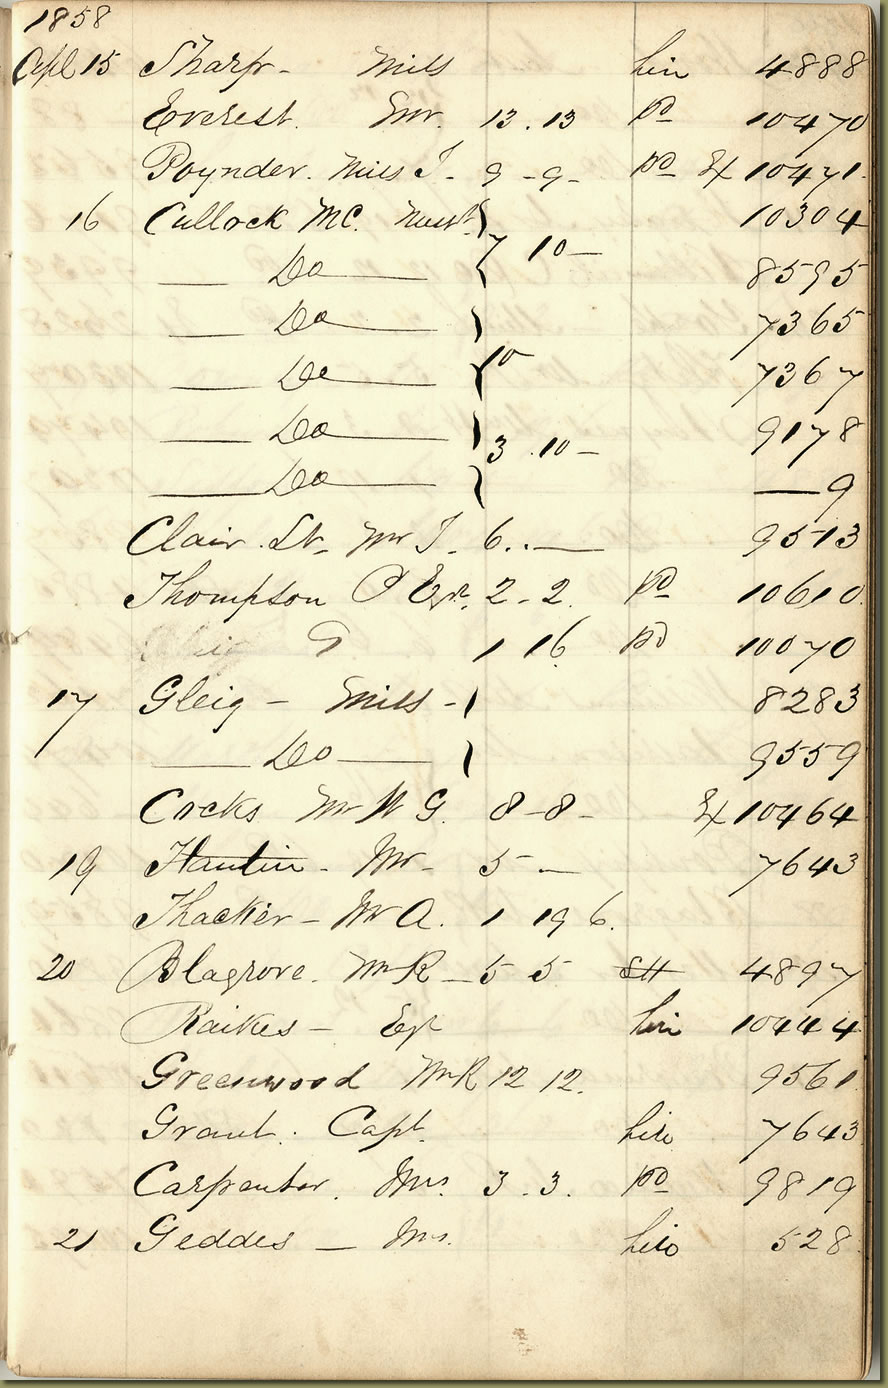 1858
Apl 15 Sharp - Miss hire 4888
Everest. Mr. 13. 13 pd 10470
Poynder. Miss J - 9 - 9 - pd Ex 10471
16 Cullock MC. Messrs } 7 10 — 10304
— Do — 8595
— Do — } 10 7365
— Do — 7367
— Do — } 3 . 10 — 9178
— Do — — 9
Clair. St. Mr J - 6. . — 9513
Thompson P Esqr. 2 - 2. pd 10610
G 1 16 pd 10070
17 Gleig - Miss - } 8283
— Do — } 9559
Cocks Mr W G. 8 - 8 - Ex 10464
19 Hantin - Mr - 5 — 7643
Thacker - Mr A. 1 19 6.
20 Blagrove. Mr R - 5 5 SH 4897
Raikes - Esqr hire 10444
Greenwood Mr R 12 12. 9561
Grant. Capt. hire 7643
Carpenter. Mrs. 3 . 3. pd 9819
21 Geddes — Mrs. hire 528